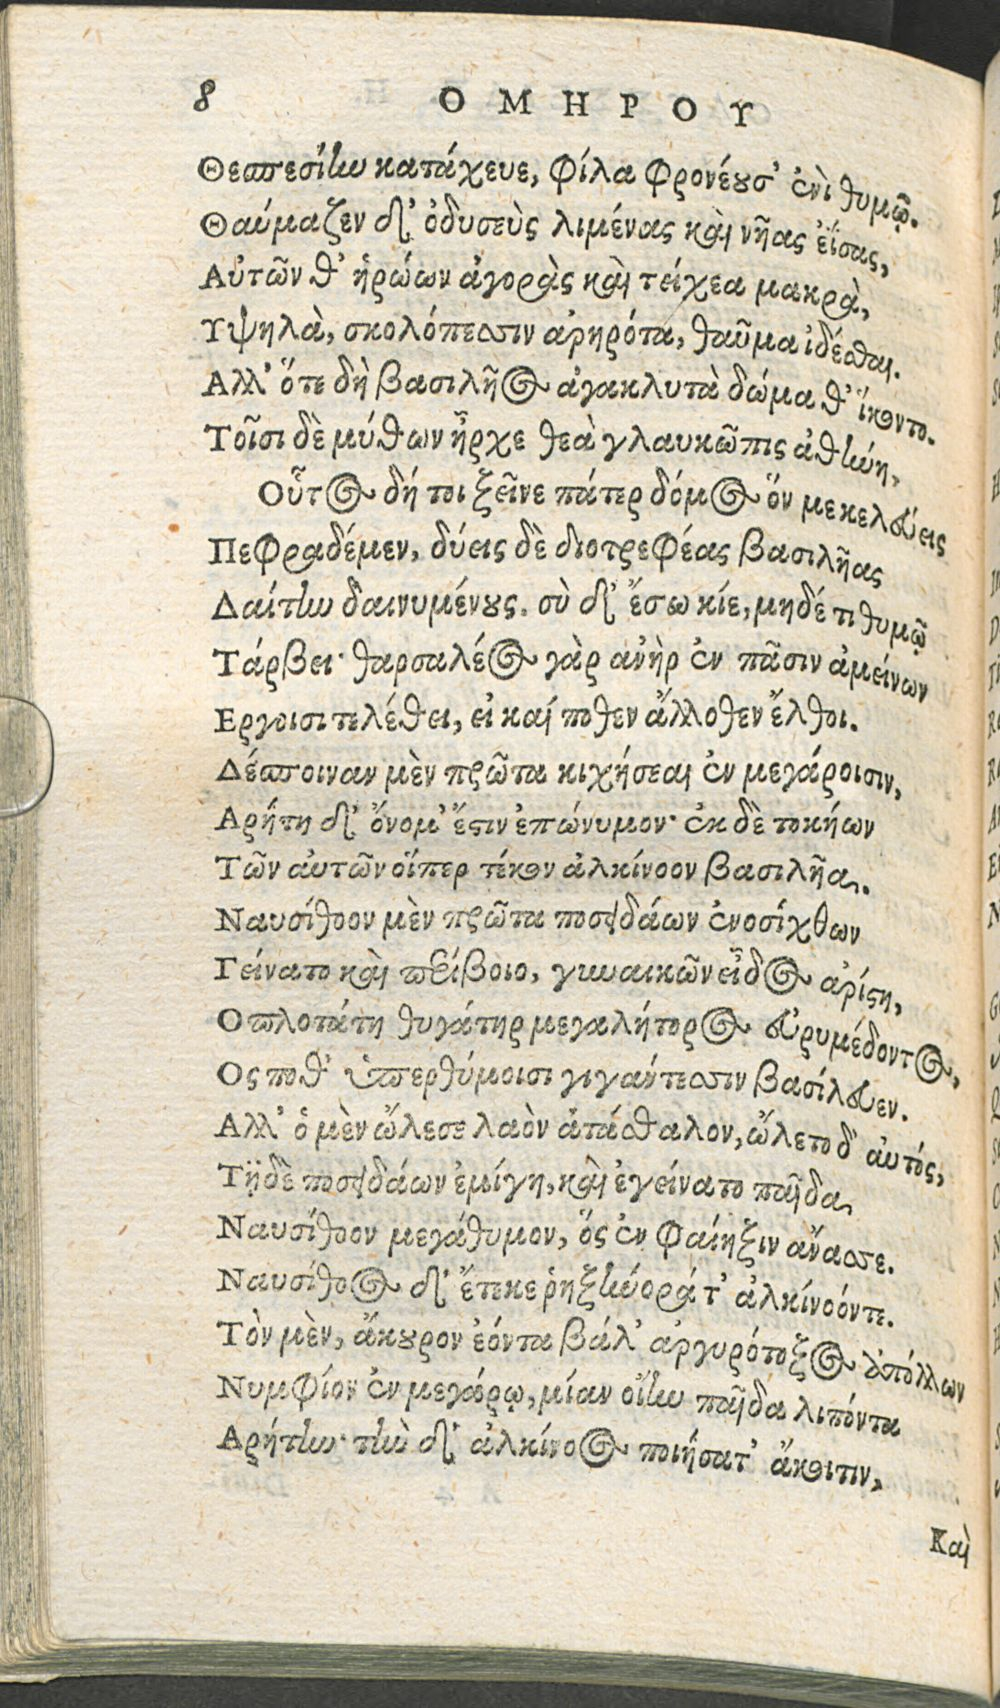 8 ΟΜΗΡΟΥ
Θεσπεσίην κατάχευε, φίλα φρονέουσ' ἐνὶ θυμῷ.
Θαύμαζεν δ' ὀδυσεὺς λιμένας καὶ νῆας ἐΐσας,
Αὐτῶν θ' ἡρώων ἀγορὰς καὶ τείχεα μακρὰ,
Υψηλὰ, σκολόπεσσιν ἀρηρότα, θαῦμα ἰδέσθαι.
Αλλ' ὅτε δὴ βασιλῆος ἀγακλυτὰ δώμαθ' ἵκοντο.
Τοῖσι δὲ μύθων ἦρχε θεὰ γλαυκῶπις ἀθήνη,
Οὗτος δή τοι ξεῖνε πάτερ δόμος ὅν με κελεύεις
Πεφραδέμεν, δύεις δὲ διοτρεφέας βασιλῆας
Δαίτην δαινυμένους. σὺ δ' ἔσω κίε, μηδέ τι θυμῷ
Τάρβει· θαρσαλέος γὰρ ἀνὴρ ἐν πᾶσιν ἀμείνων
Εργοισι τελέθει, εἰ καί ποθεν ἄλλοθεν ἔλθοι.
Δέσποιναν μὲν πρῶτα κιχήσεαι ἐν μεγάροισιν,
Αρήτη δ' ὄνομ' ἔστιν ἐπώνυμον· ἐκ δὲ τοκήων
Τῶν αὐτῶν οἵπερ τέκον ἀλκίνοον βασιλῆα.
Ναυσίθοον μὲν πρῶτα ποσειδάων ἐνοσίχθων
Γείνατο καὶ περίβοιο, γυναικῶν εἶδος ἀρίστη,
Οπλοτάτη θυγάτηρ μεγαλήτορος εὐρυμέδοντος,
Ος ποθ' ὑπερθύμοισι γιγάντεσσιν βασίλευεν.
Αλλ' ὁ μὲν ὤλεσε λαὸν ἀτάσθαλον, ὤλετο δ' αὐτός,
Τῇ δὲ ποσειδάων ἐμίγη, καὶ ἐγείνατο παῖδα
Ναυσίθοον μεγάθυμον, ὅς ἐν φαίηξιν ἄνασσε.
Ναυσίθοος δ' ἔτεκε ῥηξήνορά τ' ἀλκίνοόν τε.
Τὸν μὲν, ἄκουρον ἐόντα βάλ' ἀργυρότοξος ἀπόλλων
Νυμφίον ἐν μεγάρῳ, μίαν οἴην παῖδα λιπόντα
Αρήτην· τὴν δ' ἀλκίνοος ποιήσατ' ἄκοιτιν,
Καὶ